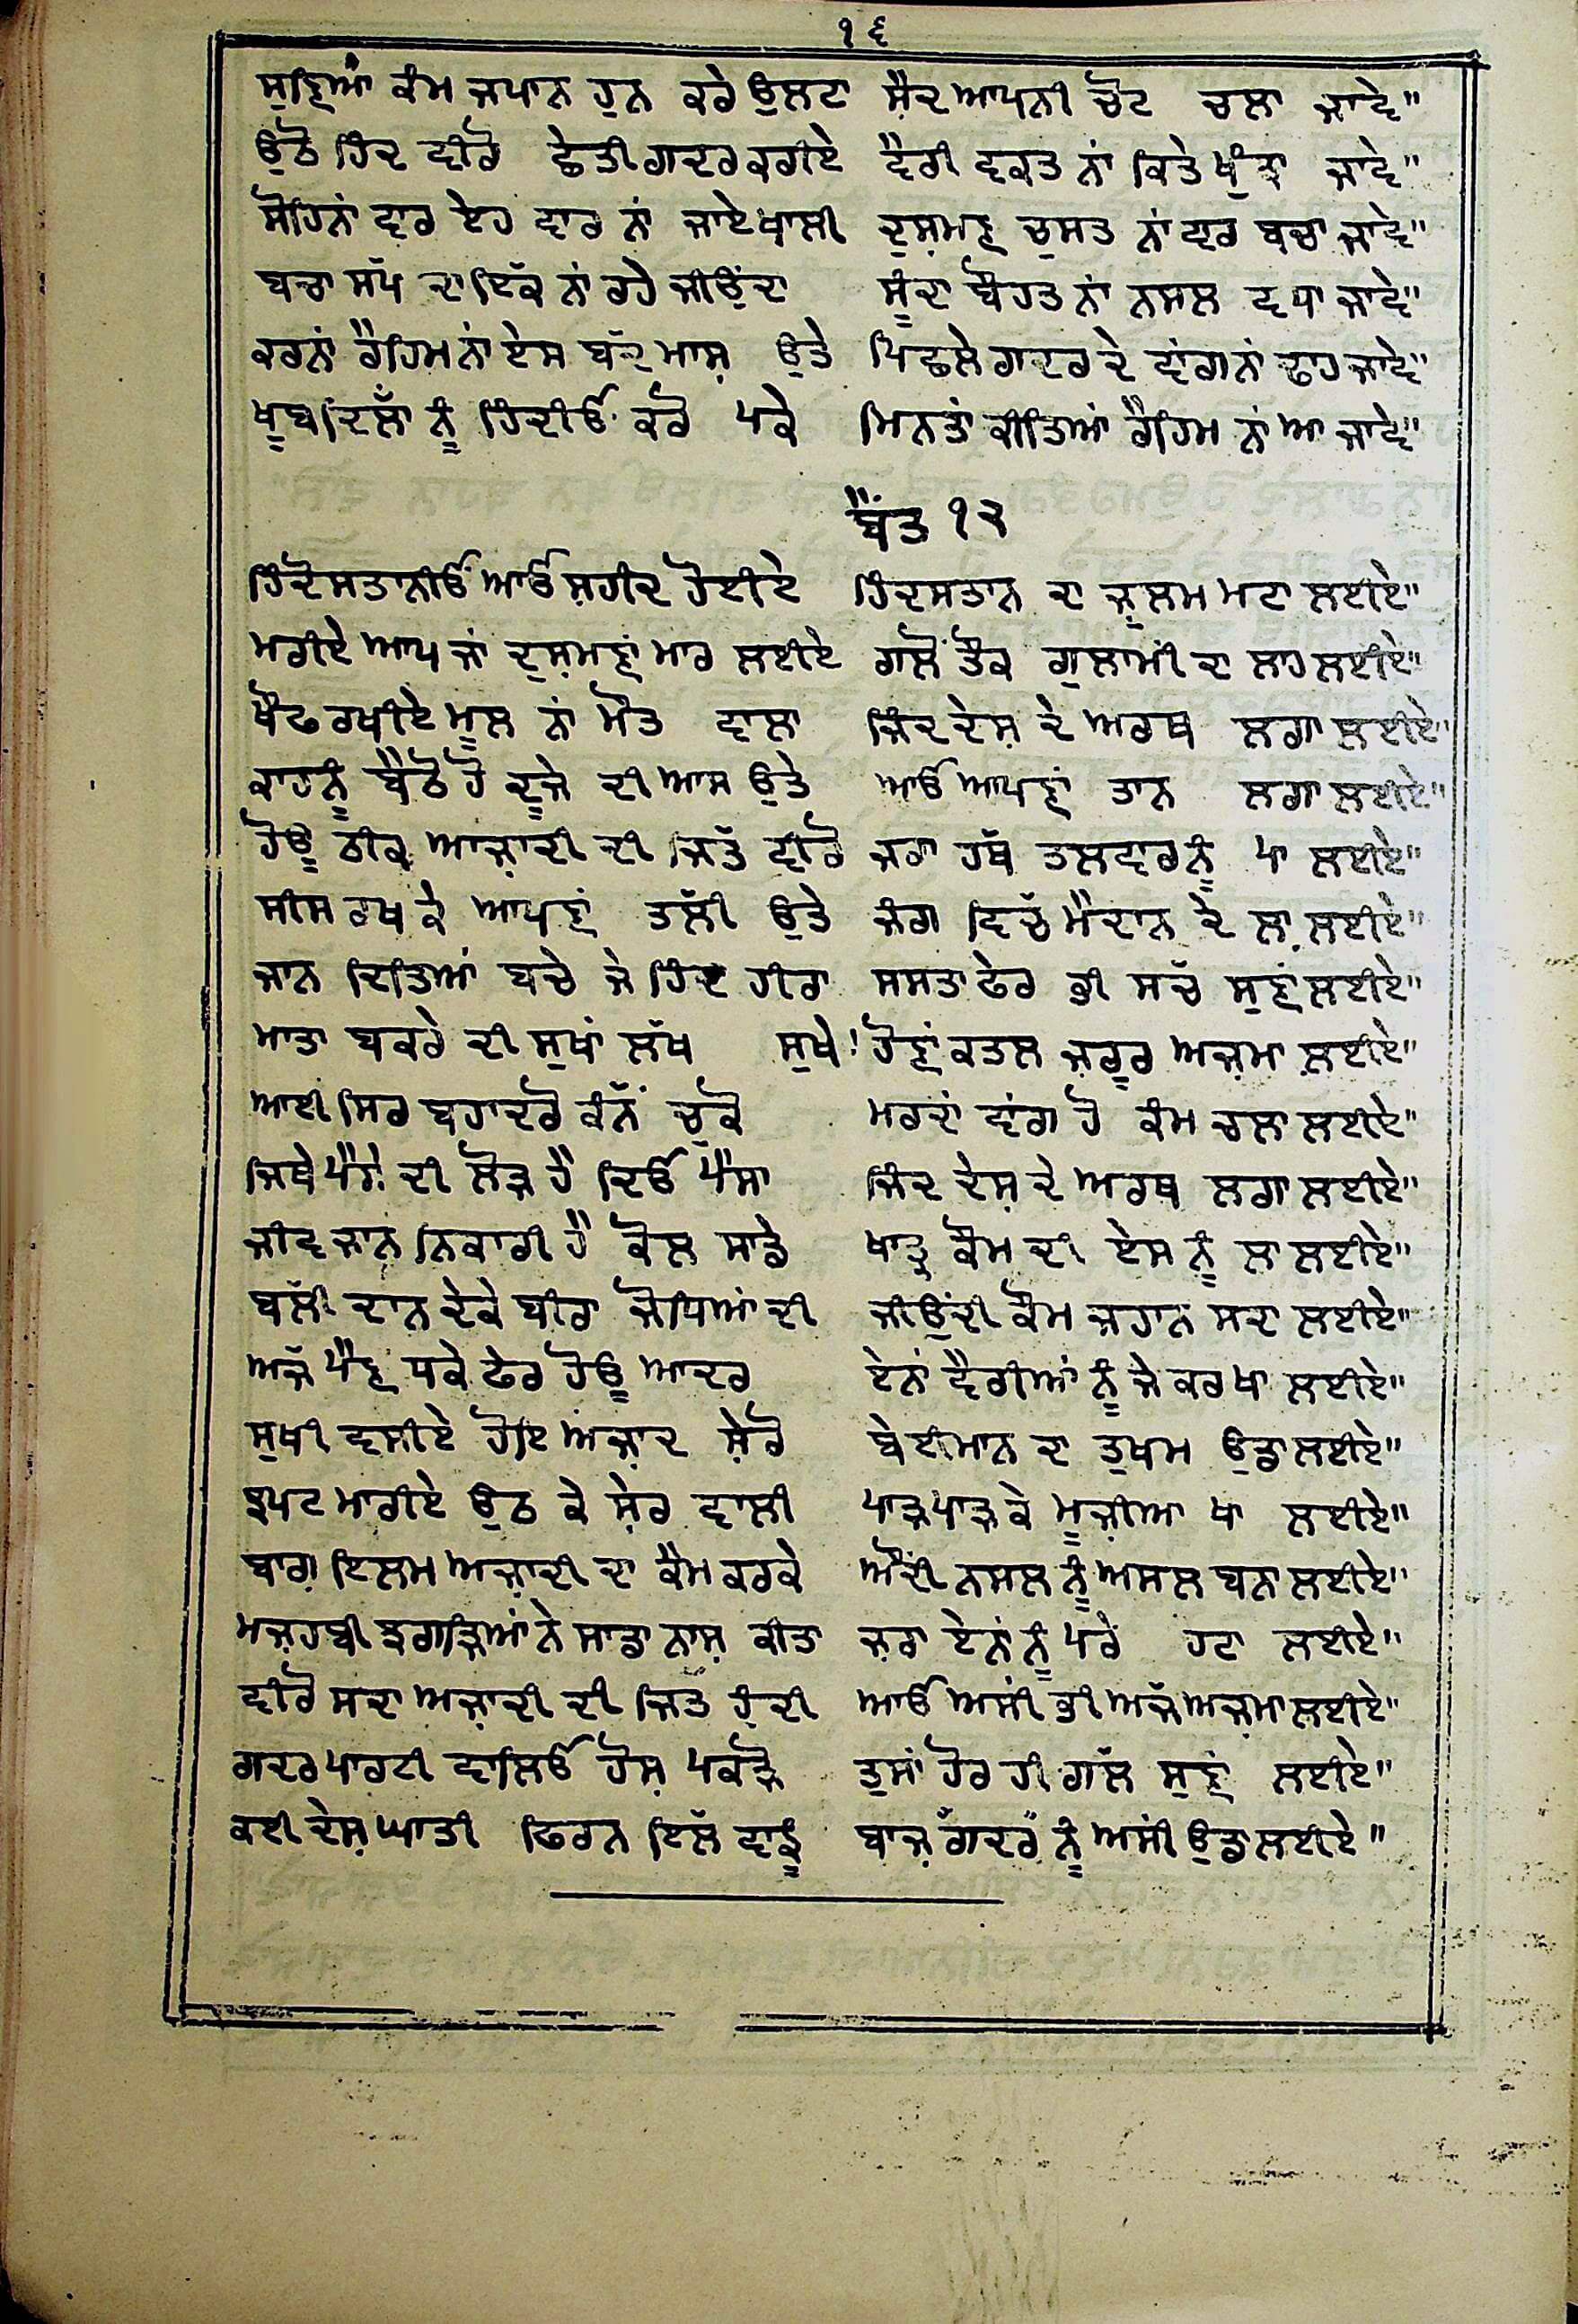 ੧੬
ਸੁਣਿਆਂ ਕੰਮ ਜਪਾਨ ਹੁਨ ਕਰੇ ਉਲਟਾ ਸ਼ੈਦ ਆਪਨੀ ਚੋਟ ਚਲਾ ਜਾਵੇ"
ਉਠੋ ਹਿੰਦ ਵੀਰੋ ਛੇਤੀ ਗਦਰ ਕਰੀਏ ਵੈਰੀ ਵਕਤ ਨਾਂ ਕਿਤੇ ਖੁੰਝਾ ਜਾਵੇ"
ਸੋਹਿਨਾਂ ਵਾਰ ਏਹ ਵਾਰ ਨਾਂ ਜਾਏ ਖਾਲੀ ਦੁਸ਼ਮਣ ਚੁਸਤ ਨਾਂ ਵਾਰ ਬਚਾ ਜਾਵੇ"
ਬਚਾ ਸੱਪ ਦਾ ਇੱਕ ਨਾਂ ਰਹੇ ਜੀਉਂਦਾ ਸੂੰਦਾ ਬੌਹਤ ਨਾਂ ਨਸਲ ਵਧਾ ਜਾਵੇ"
ਕਰਨਾਂ ਰੈਹਿਮ ਨਾਂ ਏਸ ਬੱਦਮਾਸ਼ ਉਤੇ ਪਿਛਲੇ ਗਦਰ ਦੇ ਵਾਂਗ ਨਾਂ ਢਾਹ ਜਾਵੇ"
ਖੂਬ ਦਿਲਾਂ ਨੂੰ ਹਿੰਦੀਓ ਕਰੋ ਪਕੇ ਮਿਨਤਾਂ ਕੀਤਿਆਂ ਰੈਹਿਮ ਨਾਂ ਆ ਜਾਵੇ"
ਬੈਂਤ ੧੨
ਹਿੰਦੋਸਤਾਨੀਓ ਆਓ ਸ਼ਹੀਦ ਹੋਈਏ ਹਿੰਦਸਤਾਨ ਦਾ ਜ਼ੁਲਮ ਮਟਾ ਲਈਏ"
ਮਰੀਏ ਆਪ ਜਾਂ ਦੁਸ਼ਮਣਾਂ ਮਾਰ ਲਈਏ ਗਲੋਂ ਤੌਕ ਗੁਲਾਮੀ ਦਾ ਲਾਹ ਲਈਏ"
ਖੌਫ ਰਖੀਏ ਮੂਲ ਨਾਂ ਮੌਤ ਵਾਲਾ ਜਿੰਦ ਦੇਸ਼ ਦੇ ਅਰਥ ਲਗਾ ਲਈਏ"
ਕਾਹਨੂੰ ਬੈਠੇ ਹੋ ਦੂਜੇ ਦੀ ਆਸ ਉਤੇ ਆਓ ਆਪਣਾਂ ਤਾਨ ਲਗਾ ਲਈਏ"
ਹੋਊ ਠੀਕ ਆਜ਼ਾਦੀ ਦੀ ਜਿੱਤ ਵੀਰੋ ਜਰਾ ਹੱਥ ਤਲਵਾਰ ਨੂੰ ਪਾ ਲਈਏ"
ਸੀਸ ਰਖ ਕੇ ਆਪਣਾਂ ਤਲੀ ਉਤੇ ਜੰਗ ਵਿਚੱ ਮੈਦਾਨ ਦੇ ਲਾ ਲਈਏ"
ਜਾਨ ਦਿਤਿਆਂ ਬਚੇ ਜੇ ਹਿੰਦ ਹੀਰਾ ਸਸਤਾ ਫੇਰ ਭੀ ਸਚੱ ਸੁਣਾਂ ਲਈਏ"
ਮਾਤਾ ਬਕਰੇ ਦੀ ਸੁਖਾਂ ਲੱਖ ਸੁਖੇ! ਹੋਣਾਂ ਕਤਲ ਜ਼ਰੂਰ ਅਜ਼ਮਾ ਲਈਏ"
ਆਈ ਸਿਰ ਬਹਾਦਰੋ ਕੰਨੱ ਚੁਕੋ ਮਰਦਾਂ ਵਾਂਗ ਹੋ ਕੰਮ ਚਲਾ ਲਈਏ"
ਜਿਥੇ ਪੈਸੇ ਦੀ ਲੋੜ ਹੈ ਦਿਓ ਪੈਸਾ ਜਿੰਦ ਦੇਸ਼ ਦੇ ਅਰਥ ਲਗਾ ਲਈਏ"
ਜੀਵ ਜਾਨ ਨਿਕਾਰੀ ਹੈ ਕੋਲ ਸਾਡੇ ਖਾਤ੍ਰ ਕੌਮ ਦੀ ਏਸ ਨੂੰ ਲਾ ਲਈਏ"
ਬਲੀ ਦਾਨ ਦੇਕੇ ਬੀਰਾ ਜੋਧਿਆਂ ਦੀ ਜੀਉਂਦੀ ਕੌਮ ਜਹਾਨ ਸਦਾ ਲਈਏ"
ਅਜੱ ਪੈਣ ਧਕੇ ਫੇਰ ਹੋਊ ਆਦਰ ਏਨਾਂ ਵੈਰੀਆਂ ਨੂੰ ਜੇ ਕਰ ਖਾ ਲਈਏ"
ਸੁਖੀ ਵਸੀਏ ਹੋਇ ਅਜ਼ਾਦ ਸ਼ੇਰੋ ਬੇਈਮਾਨ ਦਾ ਤੁਖਮ ਉਡਾ ਲਈਏ"
ਝਪਟ ਮਾਰੀਏ ਉਠ ਕੇ ਸ਼ੇਰ ਵਾਲੀ ਪਾੜ ਪਾੜ ਕੇ ਮੂਜ਼ੀਆ ਖਾ ਲਈਏ"
ਬਾਗ਼ ਇਲਮ ਅਜ਼ਾਦੀ ਦਾ ਕੈਮ ਕਰਕੇ ਔਂਦੀ ਨਸਲ ਨੂੰ ਅਸਲ ਬਨਾ ਲਈਏ"
ਮਜ਼ਹਬੀ ਝਗੜਿਆਂ ਨੇ ਸਾਡਾ ਨਾਸ਼ ਕੀਤਾ ਜ਼ਰਾ ਏਨਾਂ ਨੂੰ ਪਰੇ ਹਟਾ ਲਈਏ"
ਵੀਰੋ ਸਦਾ ਅਜ਼ਾਦੀ ਦੀ ਜਿਤੱ ਹੁੰਦੀ ਆਓ ਅਸੀਂ ਭੀ ਅਜੱ ਅਜ਼ਮਾ ਲਈਏ"
ਗਦਰ ਪਾਰਟੀ ਵਾਲਿਓ ਹੋਸ਼ ਪਕੜੋ ਤੁਸਾਂ ਹੋਰ ਹੀ ਗਲੱ ਸੁਣਾਂ ਲਈਏ"
ਕਈ ਦੇਸ਼ ਘਾਤੀ ਫਿਰਨ ਇਲੱ ਵਾਙੂ ਬਾਜ਼ "ਗਦਰ" ਨੂੰ ਅਸੀਂ ਉਡਾ ਲਈਏ"